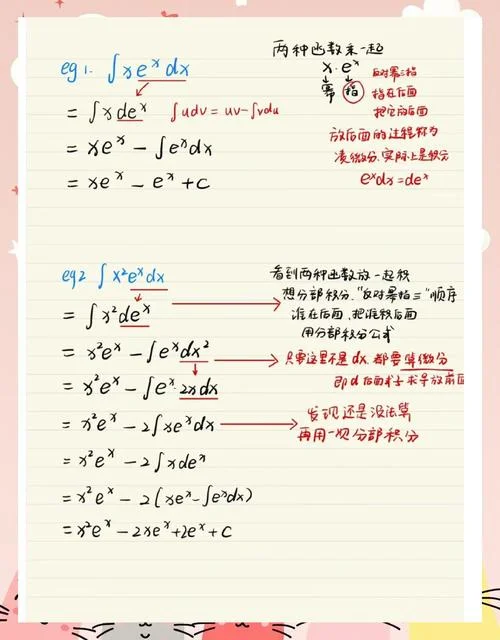 eg1. ∫xeˣdx
= ∫xdeˣ ∫udv = uv - ∫vdu
= xeˣ - ∫eˣdx
= xeˣ - eˣ + C
两种函数乘一起
x · eˣ
幂 指
反对幂三指
指在后面
把它放后面
放后面的过程称为
凑微分,实际上是积分
eˣdx = deˣ
eg2 ∫x²eˣdx
= ∫x²deˣ
= x²eˣ - ∫eˣdx²
= x²eˣ - ∫eˣ·2xdx
= x²eˣ - 2∫xeˣdx
= x²eˣ - 2∫xdeˣ
= x²eˣ - 2(xeˣ - ∫eˣdx)
= x²eˣ - 2xeˣ + 2eˣ + C
看到两种函数放一起积
想分部积分."反对幂指三"顺序
谁在后面,把谁积后面
用分部积分公式
只要这里不是dx,都要算微分
即d后面式子求导放前面
发现还是没法算
再用一次分部积分